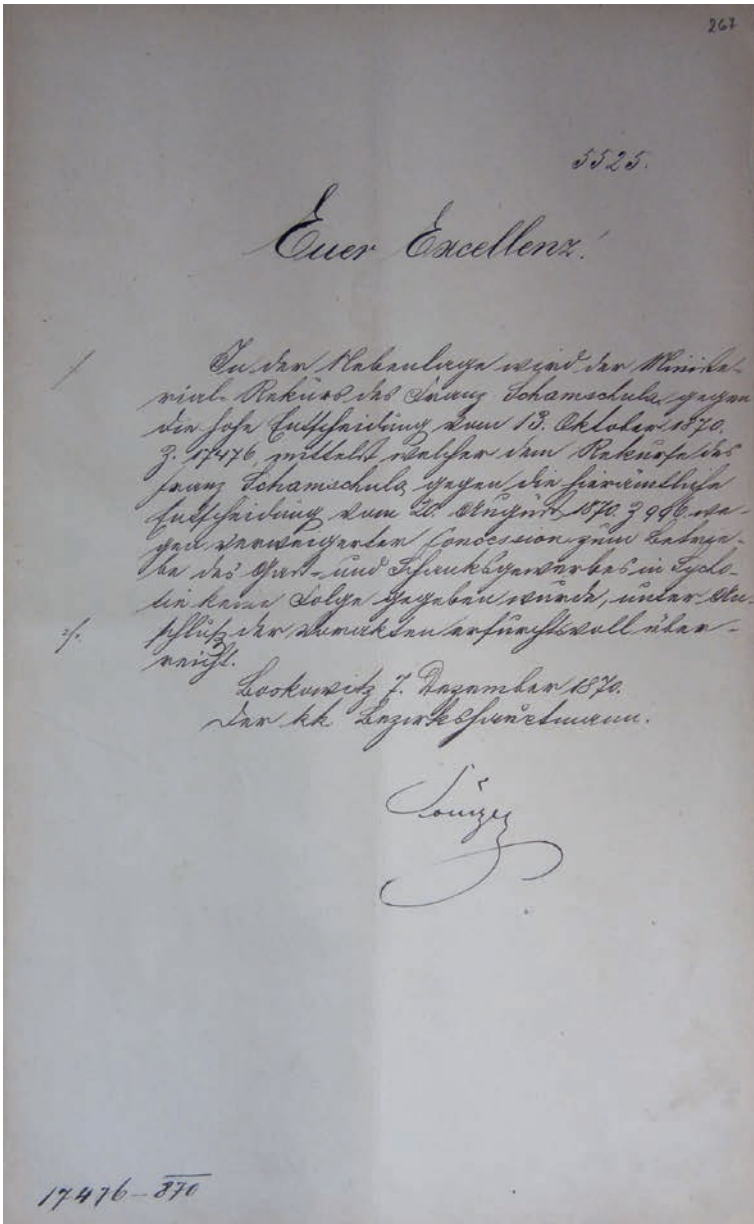 267
5525.
Euer Excellenz!
In der Nebenlage wird der Ministe-
rial-Rekurs des Franz Schamschula gegen
die hohe Entscheidung vom 13. Oktober 1870.
Z. 17476 mittelst welcher dem Rekurse des
Franz Schamschula gegen die hierämtliche
Entscheidung vom 20. August 1870 Z we-
gen verweigerter Concession zum Betrie-
be des Gast- und Schanksgewerbes in
keine Folge gegeben wurde, unter An-
schluß der Vorakten erfurchtsvoll über-
reicht.
Boskowitz 7. Dezember 1870.
Der kk. Bezirkshauptmann.
17476-870